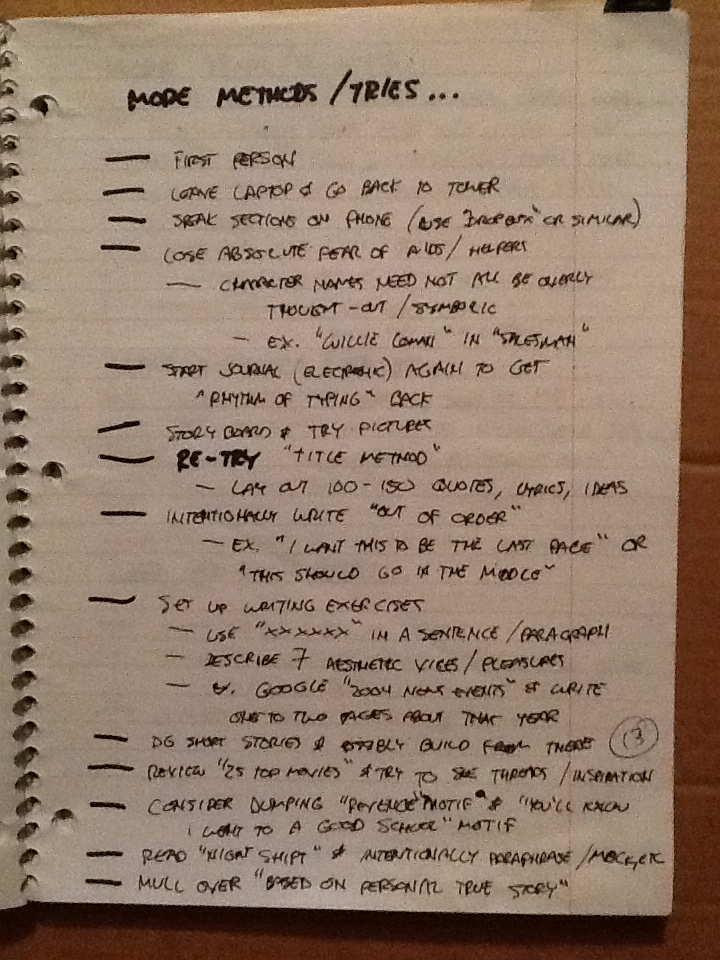 MODE METHODS/TRIES...
— FIRST PERSON
— LEAVE LAPTOP & GO BACK TO TOWER
— SPEAK SECTIONS ON PHONE (USE "DROPBOX" OR SIMILAR)
— LOSE ABSOLUTE FEAR OF AIDS/HELPERS
— CHARACTER NAMES NEED NOT ALL BE OVERLY
THOUGHT-OUT/SYMBOLIC
— EX. "WILLIE LOMAN" IN "SALESMAN"
— START JOURNAL (ELECTRONIC) AGAIN TO GET
"RHYTHM OF TYPING" BACK
— STORY BOARD & TRY PICTURES
— RE-TRY "TITLE METHOD"
— LAY OUT 100-150 QUOTES, LYRICS, IDEAS
— INTENTIONALLY WRITE "OUT OF ORDER"
— EX. "I WANT THIS TO BE THE LAST PAGE" OR
"THIS SHOULD GO IN THE MIDDLE"
— SET UP WRITING EXERCISES
— USE "XXXXXX" IN A SENTENCE/PARAGRAPH
— DESCRIBE 7 AESTHETIC VICES/PLEASURES
— EX. GOOGLE "2004 NEWS EVENTS" & WRITE
ONE TO TWO PAGES ABOUT THAT YEAR
— DO SHORT STORIES & POSSIBLY BUILD FROM THERE (3)
— REVIEW "25 TOP MOVIES" & TRY TO SEE THREADS/INSPIRATION
— CONSIDER DUMPING "REVENGE" MOTIF & "YOU'LL KNOW
I WENT TO A GOOD SCHOOL" MOTIF
— READ "NIGHT SHIFT" & INTENTIONALLY PARAPHRASE/MOCK, ETC
— MULL OVER "BASED ON PERSONAL TRUE STORY"